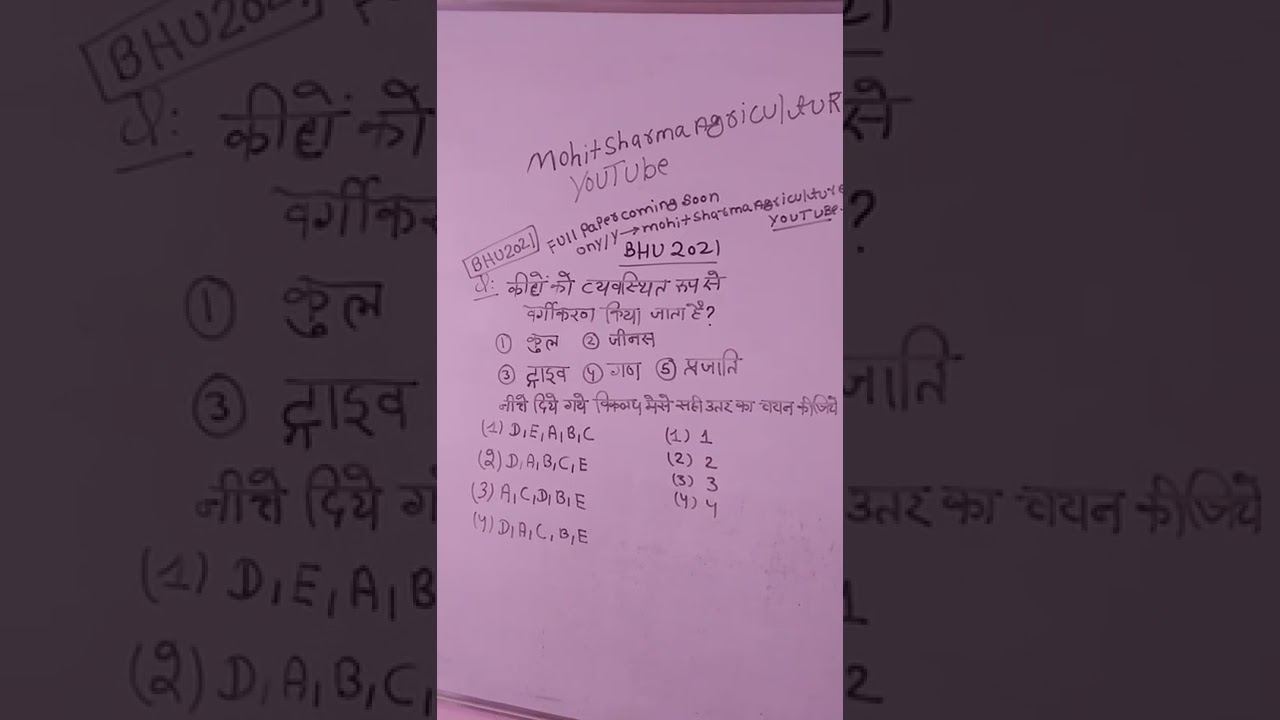 Mohit Sharma AgricultuR
YouTube
Full Paper coming Soon
ony/y → mohit sharma Agriculture
YOUTUBE.
BHU2021
BHU 2021
Q: कीटों को व्यवस्थित रूप से
वर्गीकरण किया जाता है?
① कुल ② जीनस
③ ट्राइव ④ गण ⑤ प्रजाति
नीचे दिये गये विकल्प मेसे सही उतर का चयन कीजिये
(1) D,E,A,B,C (1) 1
(2) D,A,B,C,E (2) 2
(3) A,C,D,B,E (3) 3
(4) D,A,C,B,E (4) 4